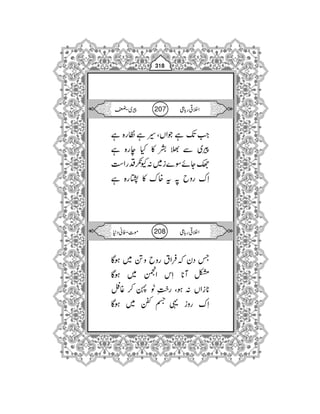 318
اخلاقی رباعی 207 پیری۔ضعف
جب تک ہے جواں، سیر ہے نظارہ ہے
پیری سے بھلا بشر کا کیا چارہ ہے
جھک جائے سوے زمیں نہ کیونکر قد راست
اک روح پہ یہ خاک کا پشتارہ ہے
اخلاقی رباعی 208 موت۔فنائی دنیا
جس دن کہ فراق روح و تن میں ہوگا
مشکل آنا اس انجمن میں ہوگا
نازاں نہ ہو، رخت نو پہن کر غافل
اک روز یہی جسم کفن میں ہوگا